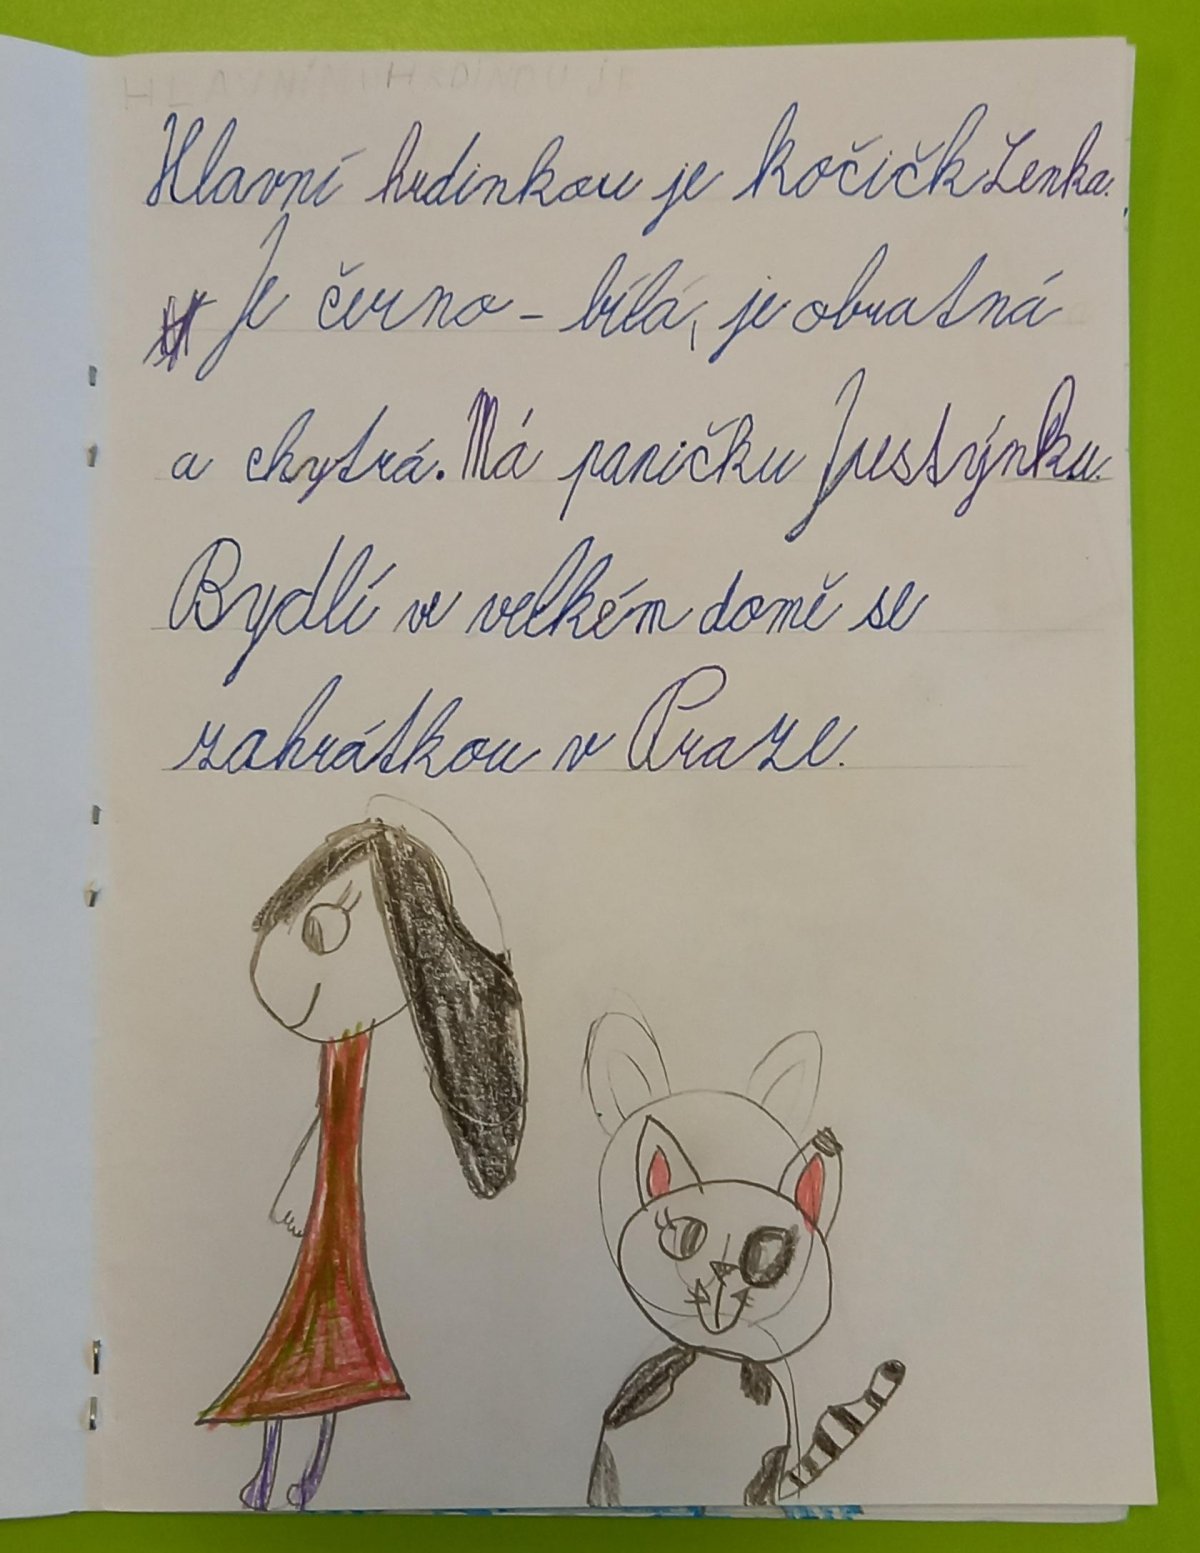 HLAVNÍM HRDINOU JE
Hlavní hrdinkou je kočičk Lenka.
Je černo - bílá, je obratná
a chytrá. Má paničku Justýnku.
Bydlí ve velkém domě se
zahrátkou v Praze.